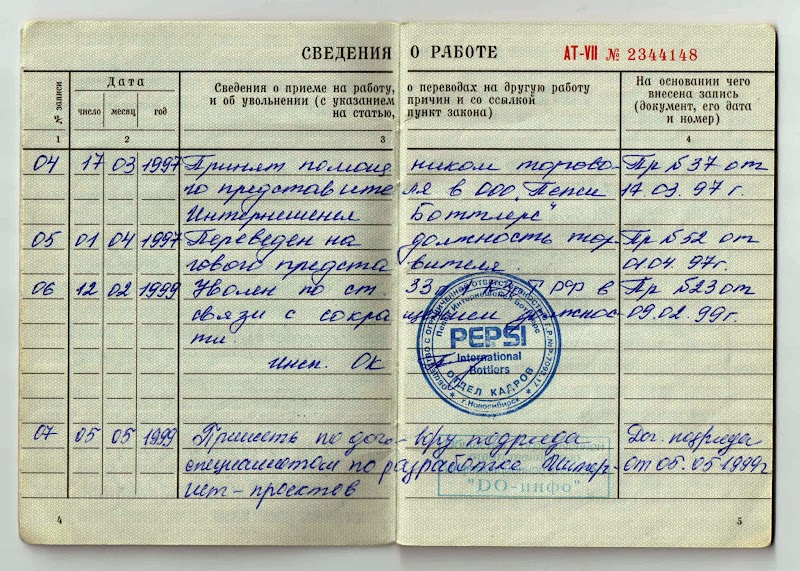 СВЕДЕНИЯ О РАБОТЕ AT-VII № 2344148
№ записи
Дата
число месяц год
Сведения о приеме на работу, о переводах на другую работу
и об увольнении (с указанием причин и со ссылкой
на статью, пункт закона)
На основании чего
внесена запись
(документ, его дата
и номер)
1 2 3 4
04 17 03 1997 Принят помощ ником торгово- Пр №37 от
го представите ля в ООО „Пепси 17.03.97 г.
Интернешенел Боттлерс"
05 01 04 1997 Переведен на должность тор- Пр №52 от
гового предста вителя. 01.04.97г.
06 12 02 1999 Уволен по ст. 33 РФ в Пр №23 от
связи с сокра щением должнос- 09.02.99г.
ти.
инсп. ОК
ОБЩЕСТВО С ОГРАНИЧЕННОЙ ОТВЕТСТВЕННОСТЬЮ
Пепси Интернешнл Боттлерс
PEPSI
International
Bottlers
ОТДЕЛ КАДРОВ
г. Новосибирск
07 05 05 1999 Принять по дого- вору подряда Дог. подряда
специалистом по разработке Интер- от 05.05.1999г
нет-проектов
"DO-инфо"
4 5